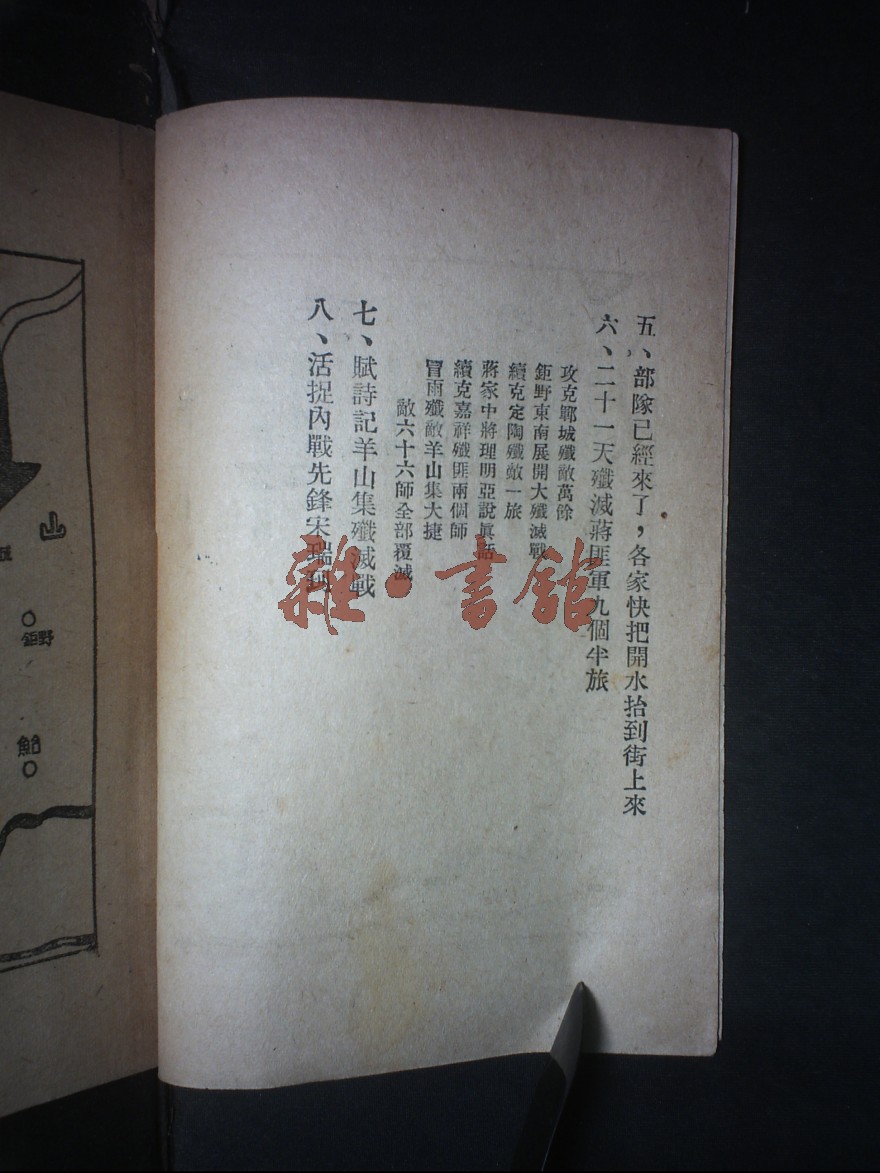 五、部隊已經來了，各家快把開水抬到街上來
六、二十一天殲滅蔣匪軍九個半旅
攻克鄆城殲敵萬餘
鉅野東南展開大殲滅戰
續克定陶殲敵一旅
蔣家中將理明亞說眞話
續克嘉祥殲匪兩個師
冒雨殲敵羊山集大捷
敵六十六師全部覆滅
七、賦詩記羊山集殲滅戰
八、活捉內戰先鋒宋瑞珂
雜·書館
山
鉅野